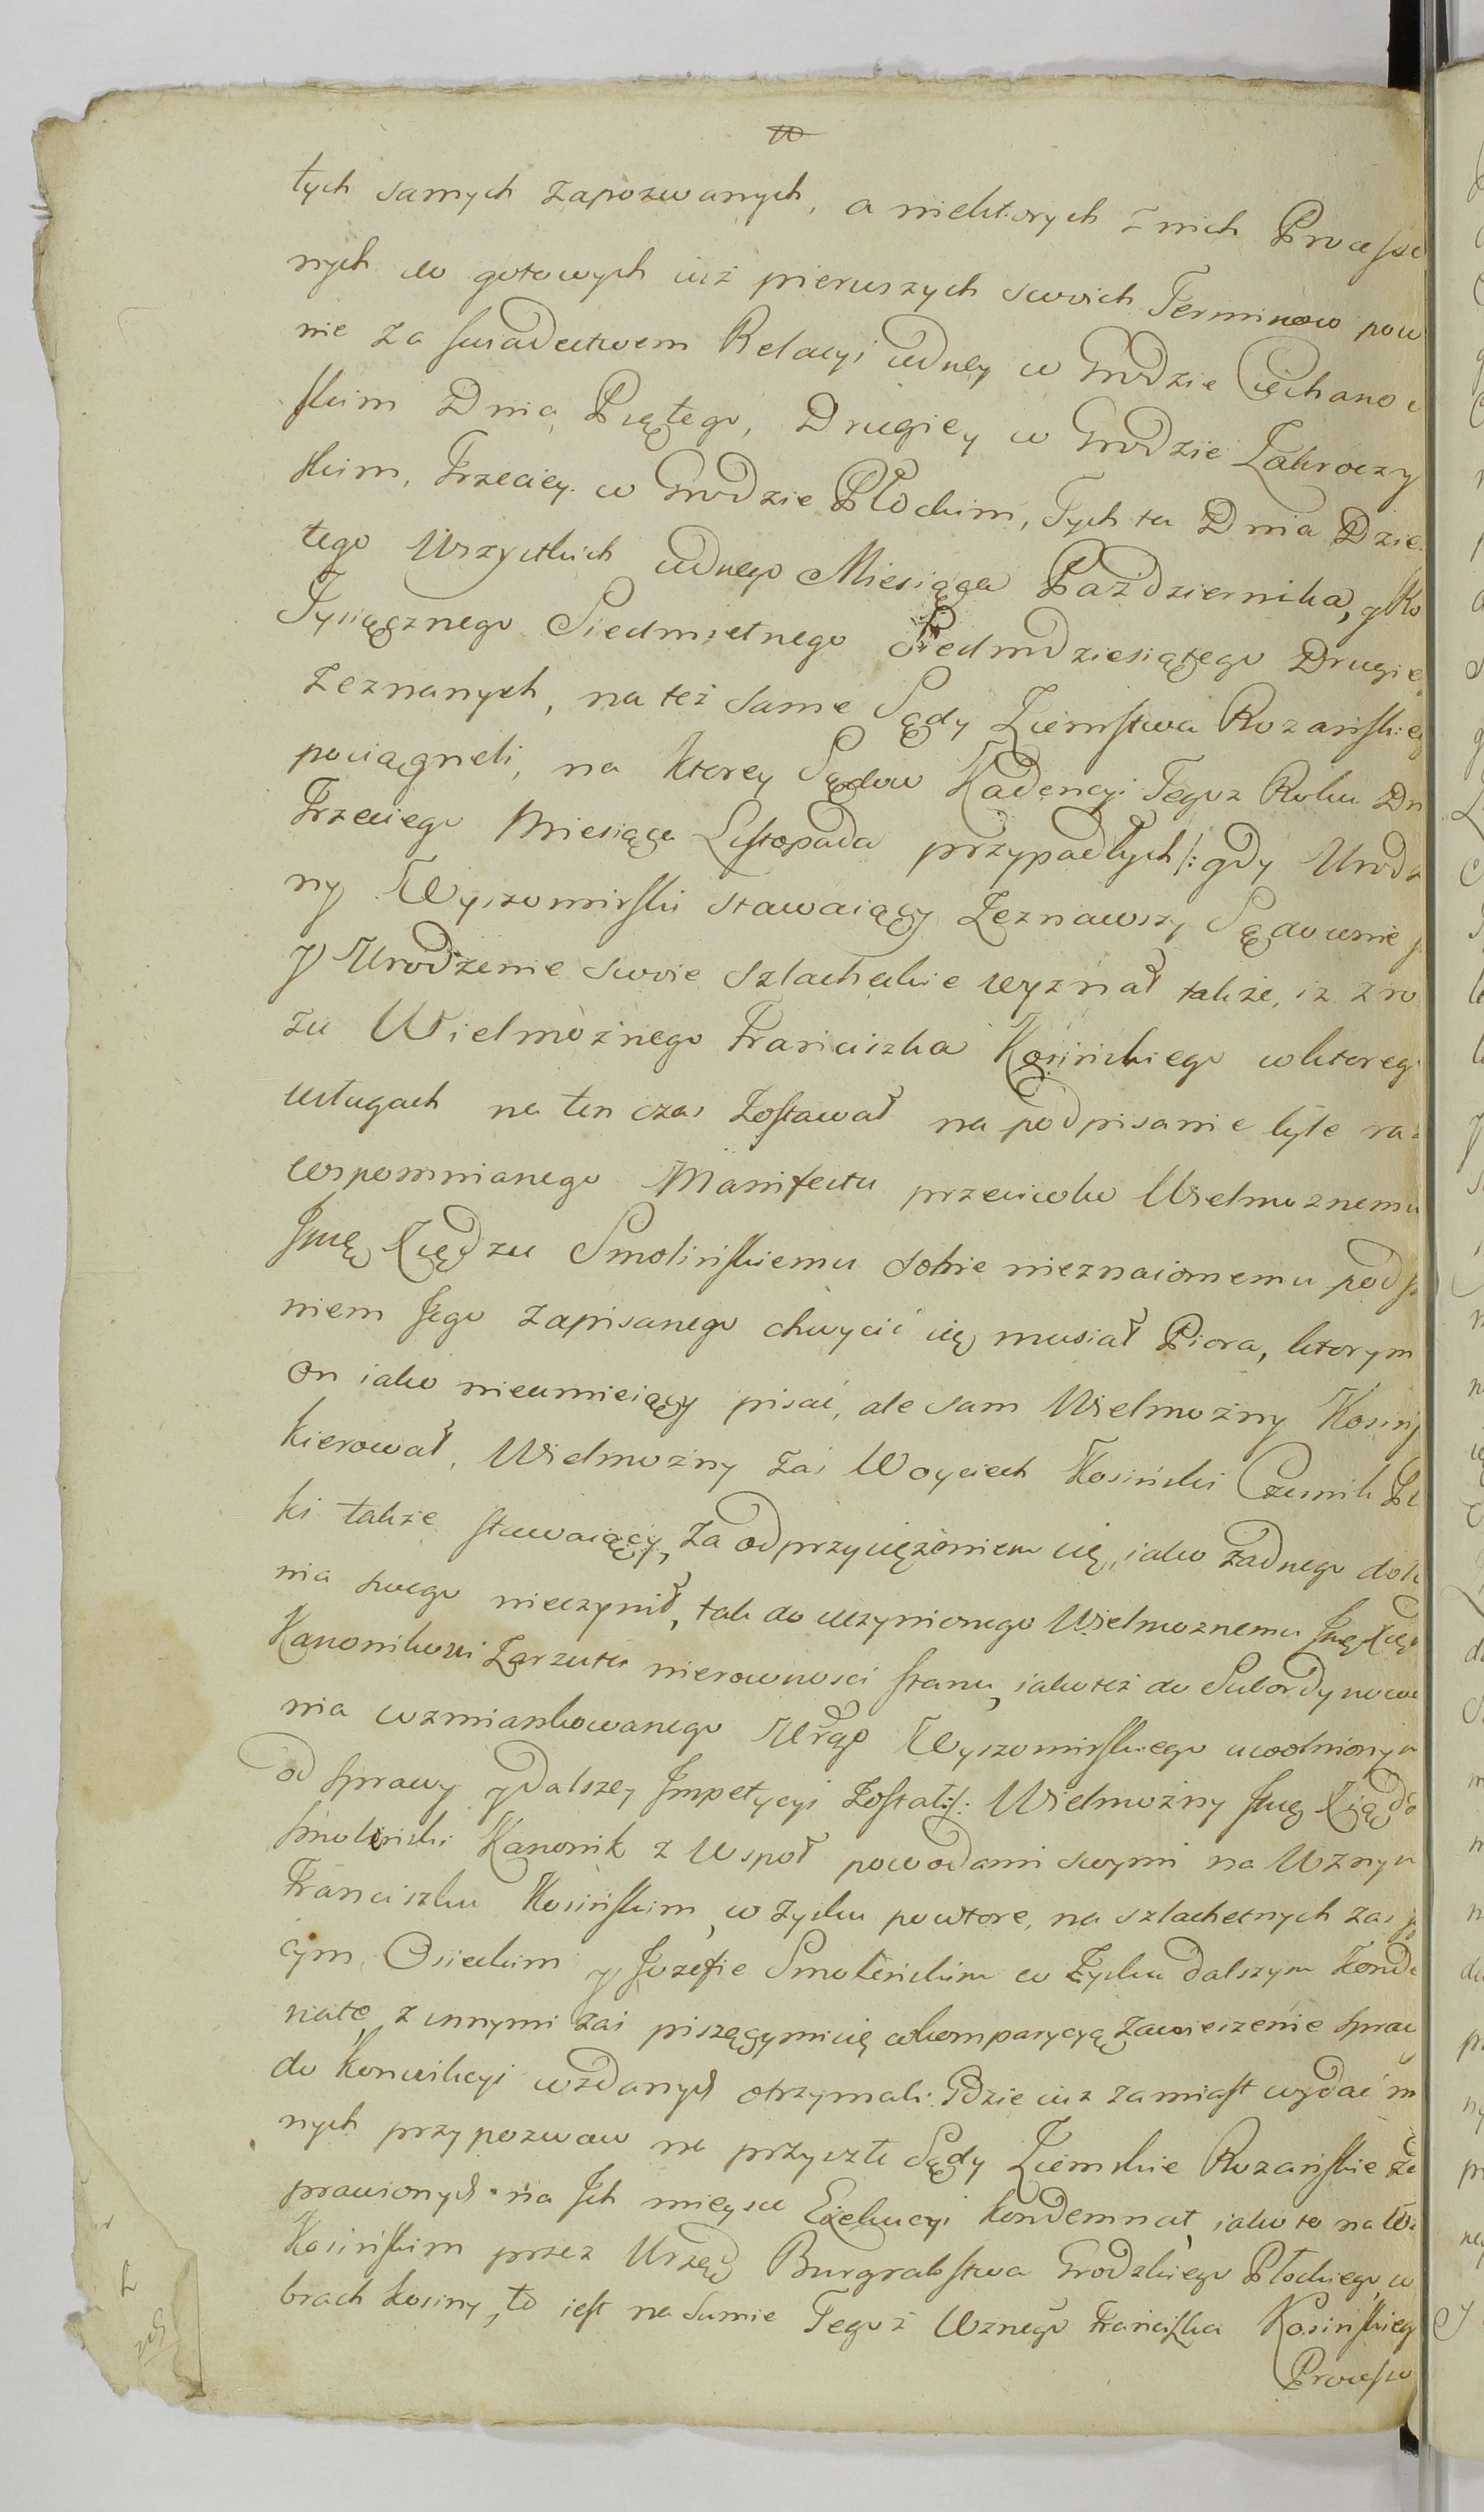 w
tych samych zapozwanych, a niektorych z nich Processo
nych do gotowych iuż pierwszych swoich Terminow pow
nie za swiadectwem Relacyi iedney w Grodzie Ciechano
skim Dnia Piątego, Drugiey w Grodzie Zakroczy
skim, Trzeciey w Grodzie Płockim, Tychta Dnia Dzie
tego Wszystkich iednego Miesiąca Pazdziernika, y Ro
Tysiącznego Siedmsetnego Siedmdziesiątego Drugie
zeznanych, na też same Sądy Ziemstwa Rozańskieg
pociągneli, na ktorey Sądow Kadencyi Tegoz Roku Dn
Trzeciego Miesiąca Listopada przypadłych /: gdy Urodz
ny Wyszomirski stawaiący Zeznawszy Sądownie
y Urodzenie swoie szlacheckie wyznał także, iz z ro
zu Wielmożnego Franciszka Kosińskiego wktoreg
usługach na ten czas zostawał na podpisanie tyle ra
wspomnianego Manifestu przeciwko Wielmoznemu
Jmę Xiędzu Smolińskiemu sobie nieznaiomemu podp
niem Jego zapisanego chwycić się musiał Piora, ktorym
on iako nieumieiący pisać, ale sam Wielmożny Kosiń
kierował, Wielmożny zaś Woyciech Kosiński Czesnik
ki także stawaiący, za odprzysiężeniem się, iako żadnego dok
nia swego nieczynił, tak do uczynionego Wielmoznemu Jmę Xię
Kanonikowi Zarzutu nierowności stanu, iakoteż do Subordynowa
nia wzmiankowanego Urgo Wyszomirskiego uwolnionym
od sprawy y dalszey Jmpetycyi został :/: Wielmożny Jmę Xiądz
Smoliński Kanonik z Wspoł powodami swymi na Wznym
Franciszku Kosińskim, w zysku powtore, na szlachetnych zaś
cym Osieckim y Jozefie Smoleńskim w Zysku dalszym Konde
natę, z innymi zaś piszącymisię wkomparycyą zawieszenie spraw
do Konwikcyi wzdanych otrzymali. Gdzie iuz zamiast wydać in
nych przypozwow na przyszłe Sądy Ziemskie Rozańskie
prawionych na Jch mieyscu Exekucyi kondemnat, iako to na W
Kosińskim przez Urząd Burgrabstwa Grodzkiego Płockiego, w
brach Kosiny, to iest na Sumie Tegoż Wznego Franciszka Kosińskieg
Processo